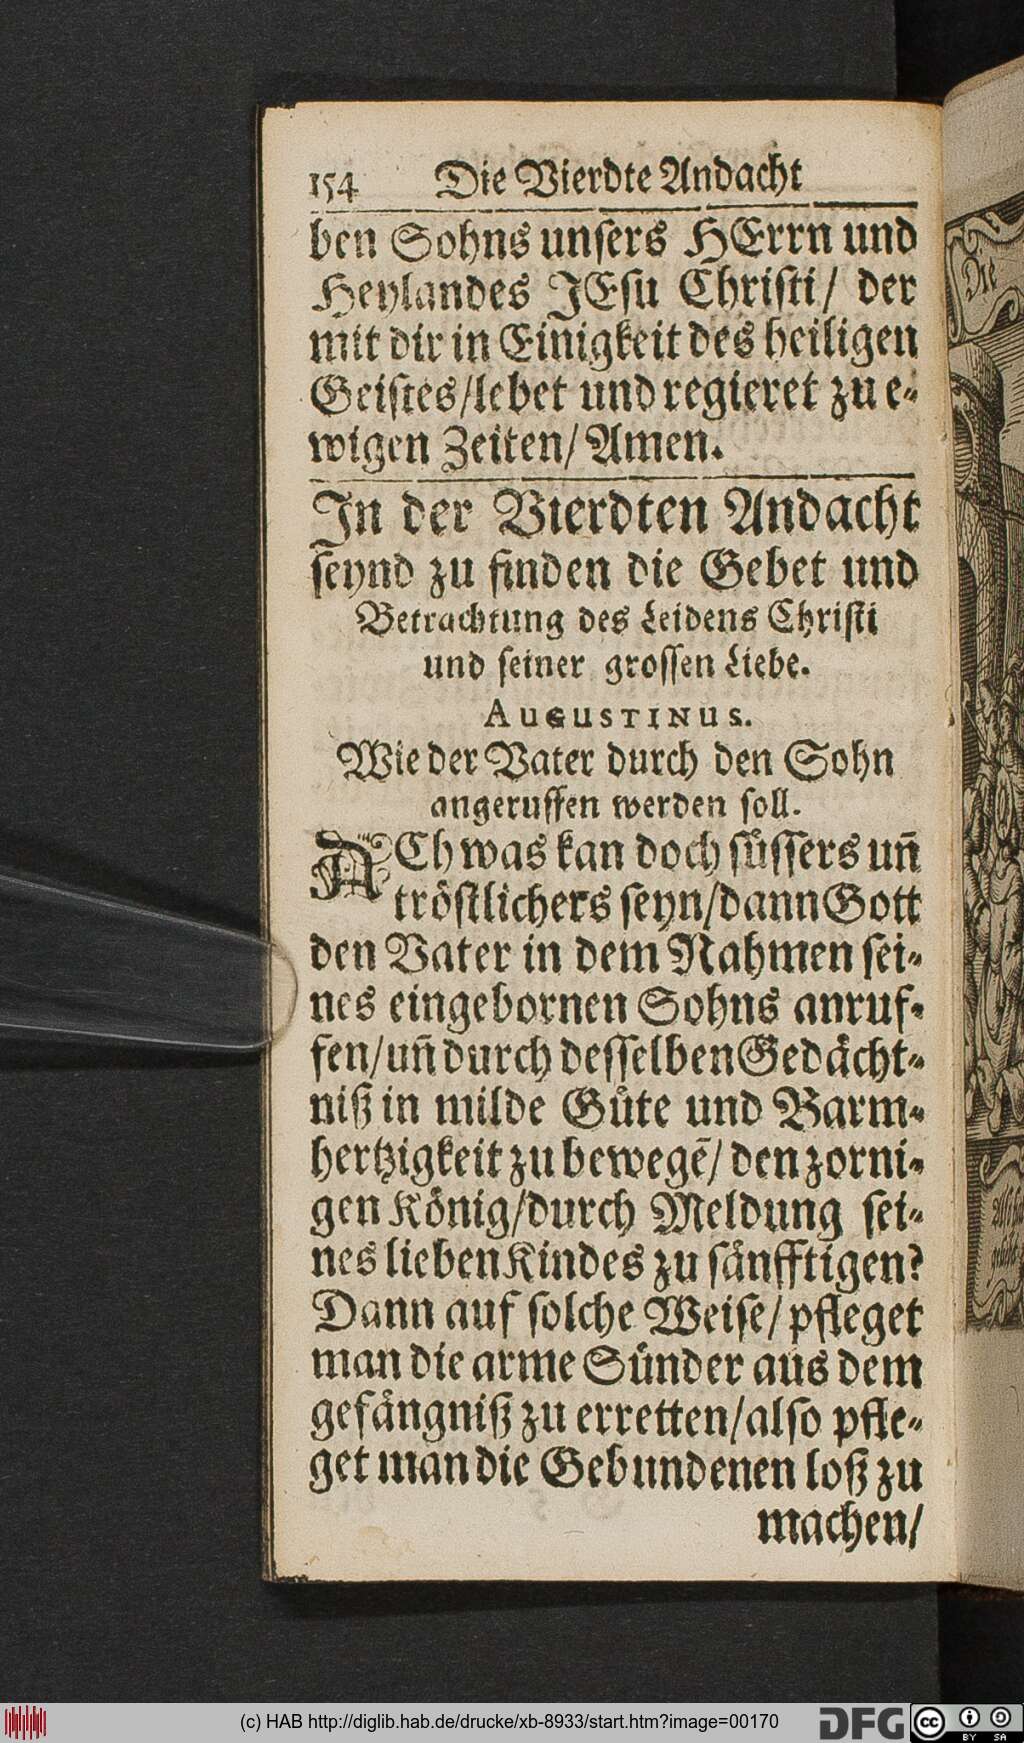 154 Die Vierdte Andacht
ben Sohns unsers HErrn und
Heylandes JEsu Christi/ der
mit dir in Einigkeit des heiligen
Geistes/lebet und regieret zu e-
wigen Zeiten/ Amen.
In der Vierdten Andacht
seynd zu finden die Gebet und
Betrachtung des Leidens Christi
und seiner grossen Liebe.
AUGUSTINUS.
Wie der Vater durch den Sohn
angeruffen werden soll.
ACh was kan doch süssers un̄
tröstlichers seyn/dann Gott
den Vater in dem Nahmen sei-
nes eingebornen Sohns anruf-
fen/un̄ durch desselben Gedächt-
niß in milde Güte und Barm-
hertzigkeit zu bewegē/ den zorni-
gen König/durch Meldung sei-
nes lieben Kindes zu sänfftigen?
Dann auf solche Weise/ pfleget
man die arme Sünder aus dem
gefängniß zu erretten/also pfle-
get man die Gebundenen loß zu
machen/
Die
(c) HAB http://diglib.hab.de/drucke/xb-8933/start.htm?image=00170
DFG
cc
BY SA